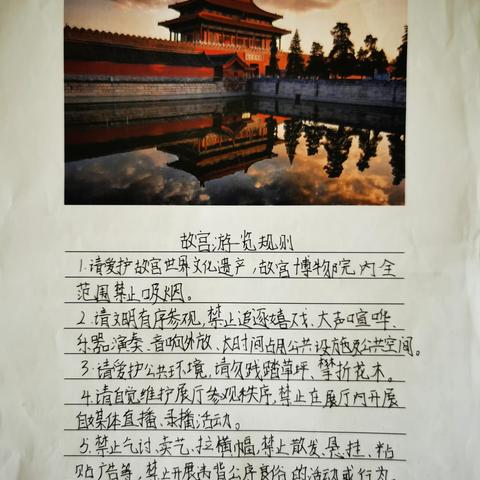 故宫游览规则
1.请爱护故宫世界文化遗产,故宫博物院内全
范围禁止吸烟。
2.请文明有序参观,禁止追逐嬉戏、大声喧哗、
乐器演奏、音响外放、长时间占用公共设施及公共空间。
3.请爱护公共环境,请勿践踏草坪、攀折花木。
4.请自觉维护展厅参观秩序,禁止在展厅内开展
自媒体直播、录播活动。
5.禁止乞讨、卖艺、拉横幅,禁止散发、悬挂、粘
贴广告等,禁止开展违背公序良俗的活动或行为。